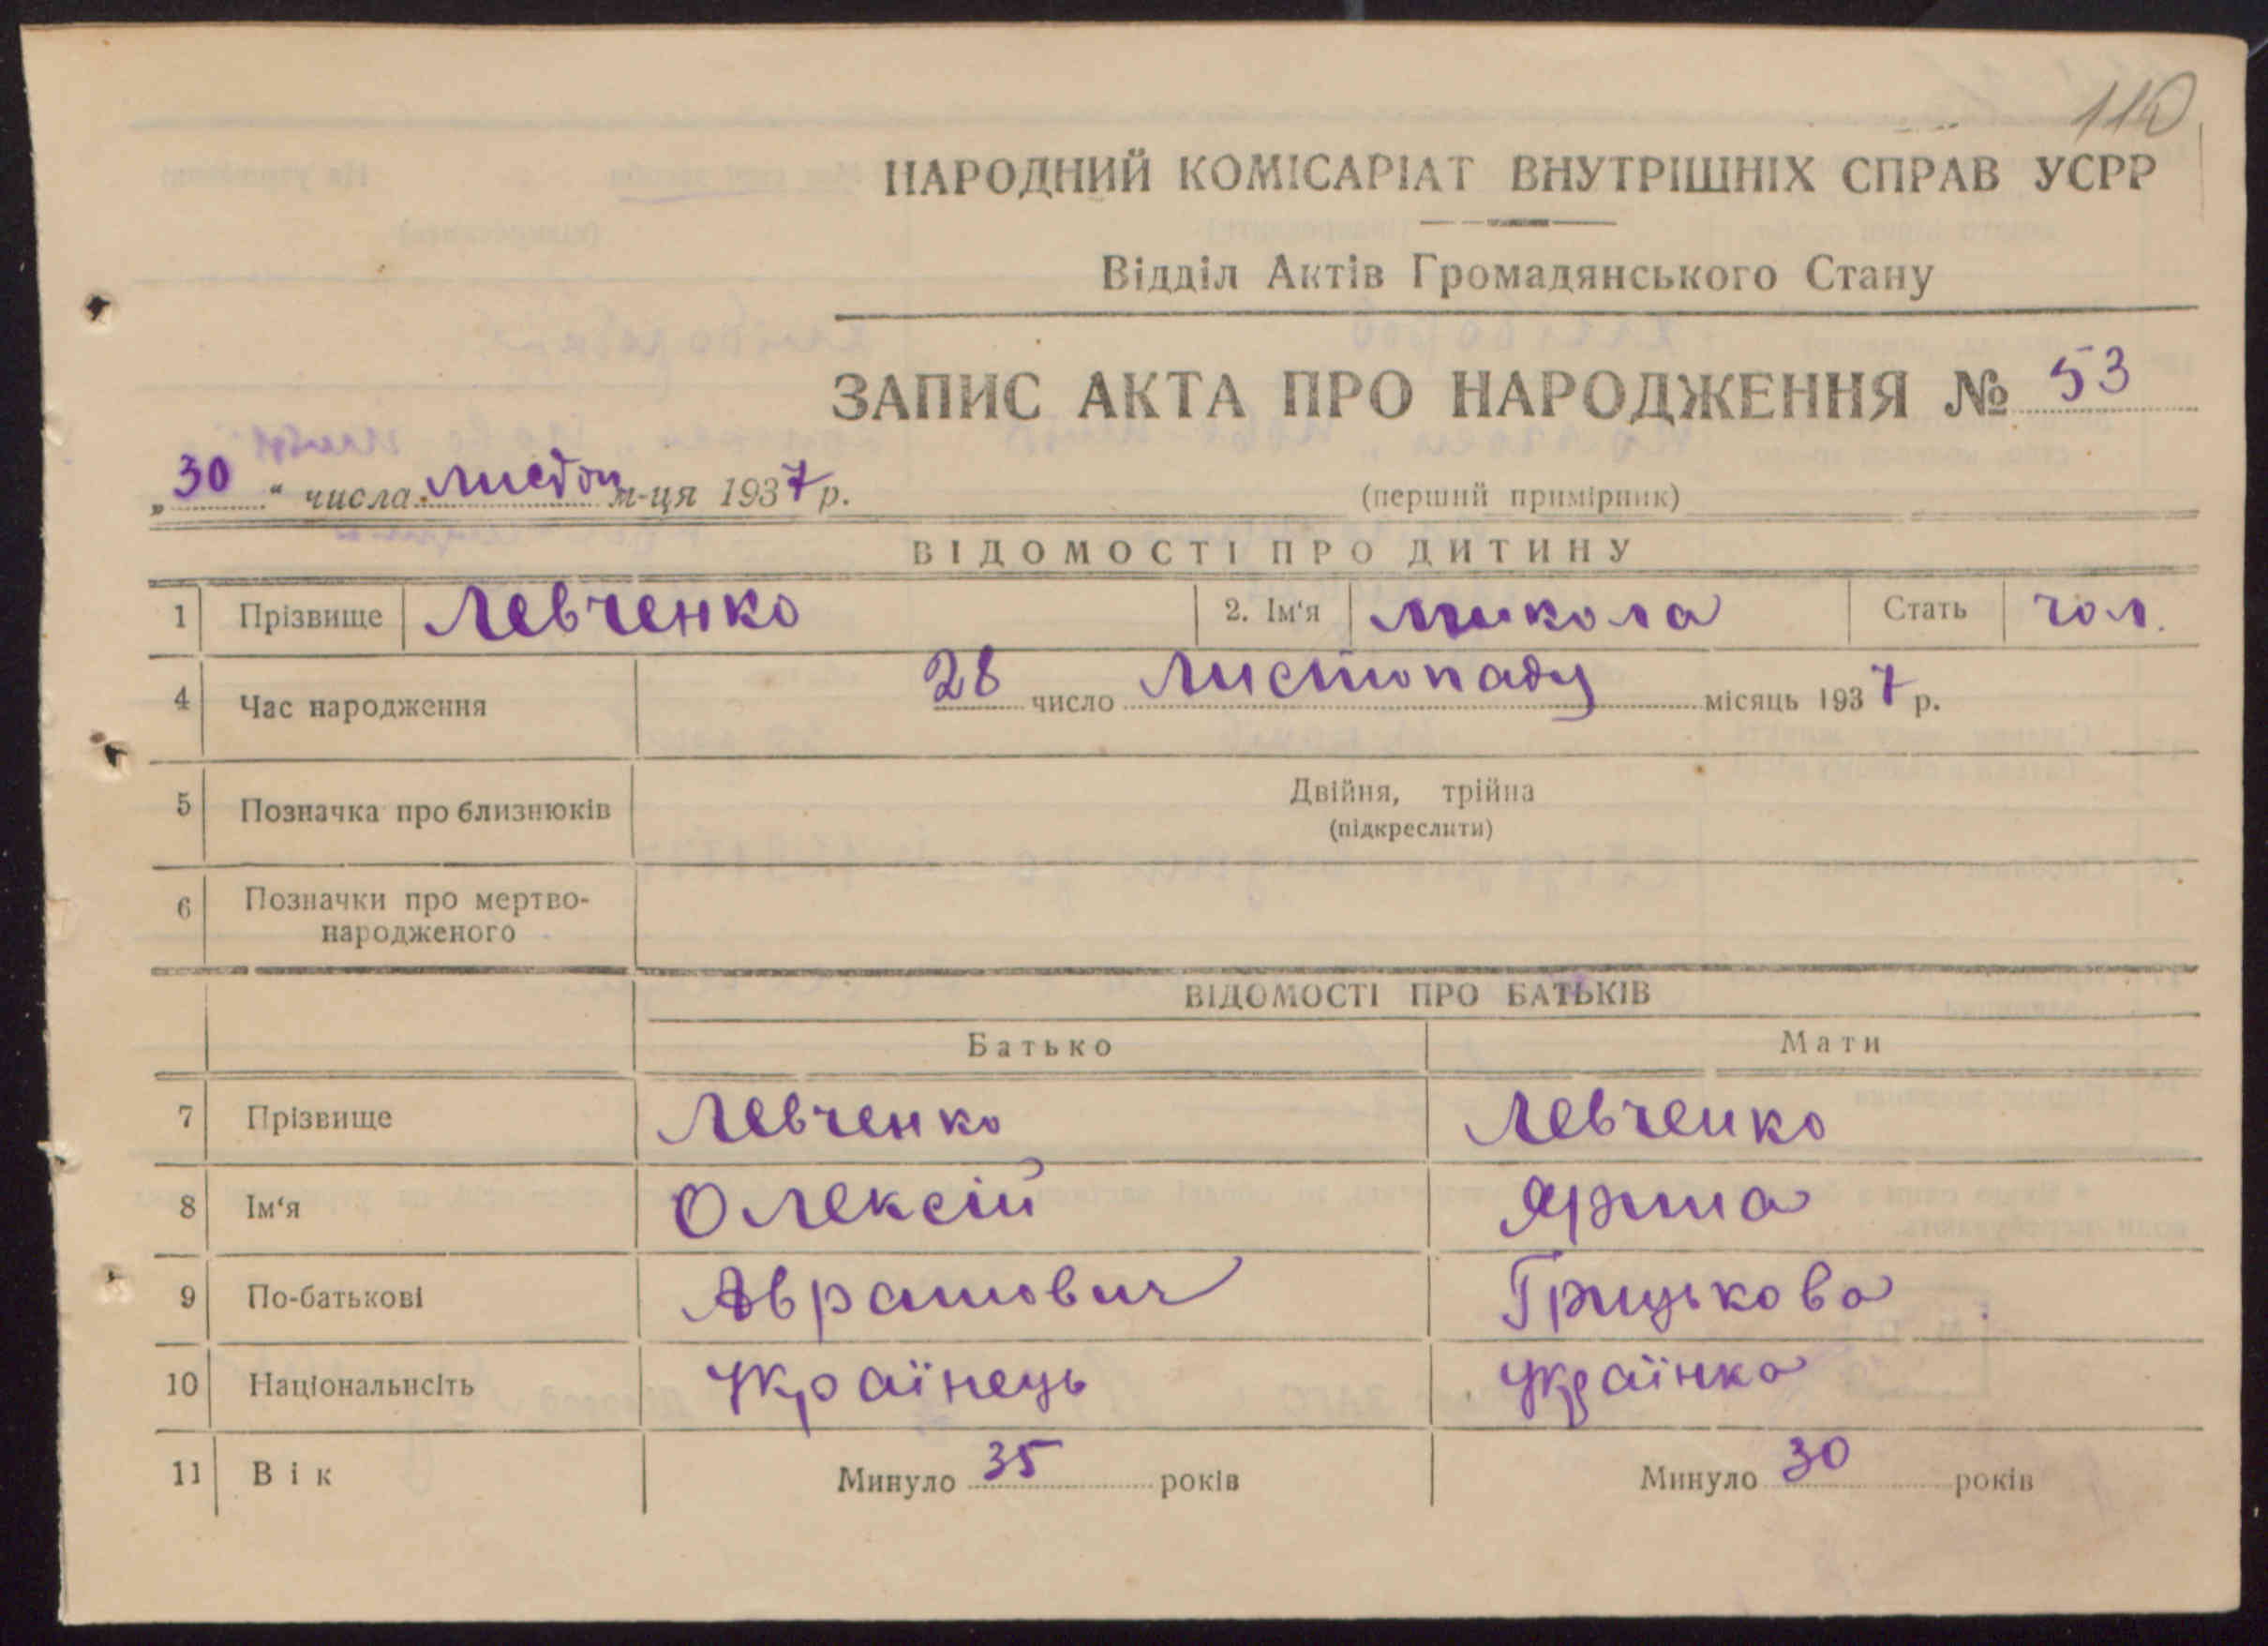 110
НАРОДНИЙ КОМІСАРІАТ ВНУТРІШНІХ СПРАВ УСРР
Відділ Актів Громадянського Стану
ЗАПИС АКТА ПРО НАРОДЖЕННЯ № 53
„30“ числа листоп м-ця 1937 р.
(перший примірник)
ВІДОМОСТІ ПРО ДИТИНУ
1 Прізвище Левченко 2. Ім‘я Микола Стать чол.
4 Час народження 28 число Листопаду місяць 1937 р.
5 Позначка про близнюків Двійня, трійна
(підкреслити)
6 Позначки про мертво-
народженого
ВІДОМОСТІ ПРО БАТЬКІВ
Батько Мати
7 Прізвище Левченко Левченко
8 Ім‘я Олексій Ярина
9 По-батькові Аврамович Грицькова
10 Національнсіть Українець Українка
11 Вік Минуло 35 років Минуло 30 років